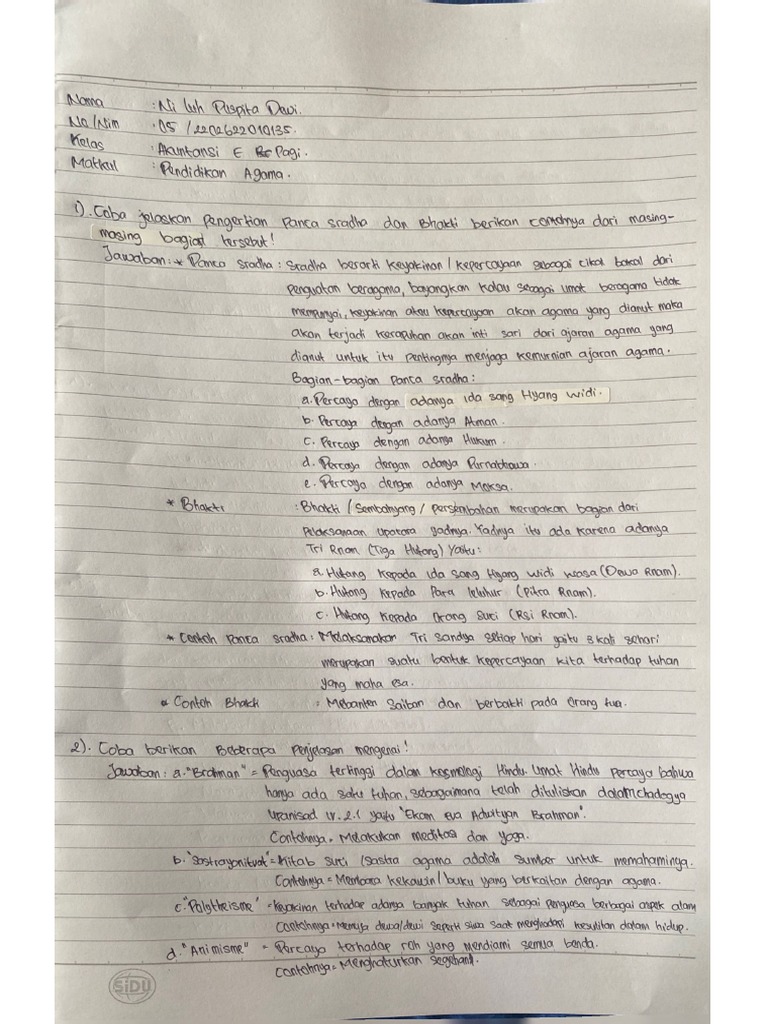 Nama : Ni Luh Puspita Dewi.
No/Nim : 05 / 2202622010135.
Kelas : Akuntansi E Pagi.
Matkul : Pendidikan Agama.
1). Coba jelaskan Pengertian Panca sradha dan Bhakti berikan contohnya dari masing-
masing bagian tersebut!
Jawaban : * Panca sradha : sradha berarti keyakinan / kepercayaan sebagai cikal bakal dari
penguatan beragama, bayangkan kalau sebagai umat beragama tidak
mempunyai, keyakinan atau kepercayaan akan agama yang dianut maka
akan terjadi kerapuhan akan inti sari dari ajaran agama yang
dianut untuk itu pentingnya menjaga kemurnian ajaran agama.
Bagian-bagian Panca sradha :
a. Percaya dengan adanya Ida sang Hyang widi.
b. Percaya dengan adanya Atman.
c. Percaya dengan adanya Hukum.
d. Percaya dengan adanya Purnabhawa.
e. Percaya dengan adanya Moksa.
* Bhakti : Bhakti / Sembahyang / Persembahan merupakan bagian dari
Pelaksanaan upacara yadnya. Yadnya itu ada karena adanya
Tri Rnam (Tiga Hutang) Yaitu :
a. Hutang kepada Ida sang Hyang widi wasa (Dewa Rnam).
b. Hutang kepada Para leluhur (Pitra Rnam).
c. Hutang kepada Orang Suci (Rsi Rnam).
* Contoh Panca sradha : Melaksanakan Tri Sandya setiap hari yaitu 3 kali sehari
merupakan suatu bentuk kepercayaan kita terhadap tuhan
yang maha esa.
* Contoh Bhakti = Mebanten Saiban dan berbakti pada Orang tua.
2). Coba berikan Beberapa Penjelasan mengenai!
Jawaban : a. "Brahman" = Penguasa tertinggi dalam kosmologi Hindu. Umat Hindu percaya bahwa
hanya ada satu tuhan, sebagaimana telah dituliskan dalam chadogya
Upanisad IV.2.1 yaitu "Ekam Eva Adwityam Brahman".
Contohnya = Melakukan meditasi dan yoga.
b. "Sastrayonitvat" = Kitab suci / sastra agama adalah sumber untuk memahaminya.
Contohnya = Membaca kekawin / buku yang berkaitan dengan agama.
c. "Polytheisme" = Keyakinan terhadap adanya banyak tuhan sebagai penguasa berbagai aspek alam
Contohnya = Memuja dewa/dewi seperti siwa saat menghadapi kesulitan dalam hidup.
d. "Animisme" = Percaya terhadap roh yang mendiami semua benda.
Contohnya = Menghaturkan segehan.
SiDU